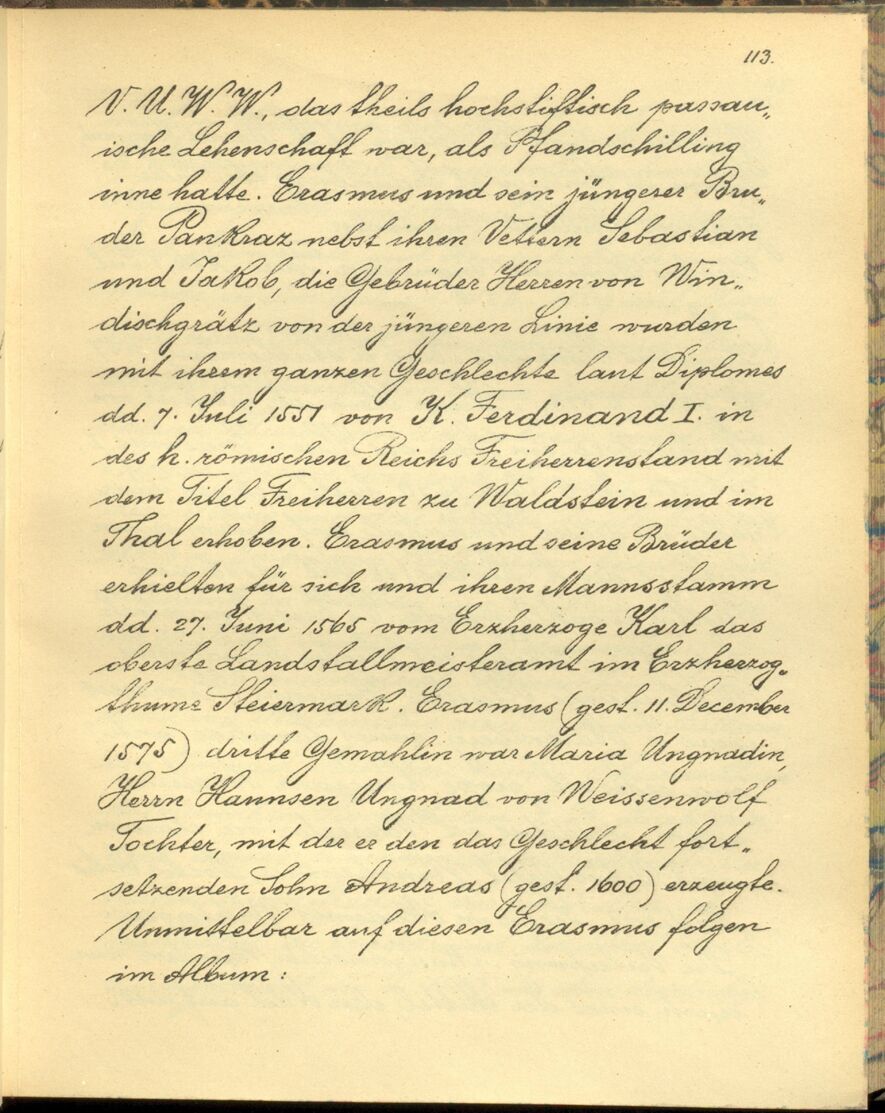 113.
V. U. W. W., das theils hochstiftisch passau„
ische Lehenschaft war, als Pfandschilling
inne hatte. Erasmus und sein jüngerer Bru„
der Pankraz nebst ihren Vettern Sebastian
und Jakob, die Gebrüder Herren von Win„
dischgrätz von der jüngeren Linie wurden
mit ihrem ganzen Geschlechte laut Diplomes
dd. 7. Juli 1551 von K. Ferdinand I. in
des h. römischen Reichs Freiherrenstand mit
dem Titel Freiherren zu Waldstein und im
Thal erhoben. Erasmus und seine Brüder
erhielten für sich und ihren Mannsstamm
dd. 27. Juni 1565 vom Erzherzoge Karl das
oberste Landstallmeisteramt im Erzherzog„
thume Steiermark. Erasmus (gest. 11. December
1575) dritte Gemahlin war Maria Ungnadin,
Herrn Hannsen Ungnad von Weissenwolf
Tochter, mit der er den das Geschlecht fort„
setzenden Sohn Andreas (gest. 1600) erzeugte.
Unmittelbar auf diesen Erasmus folgen
im Album: